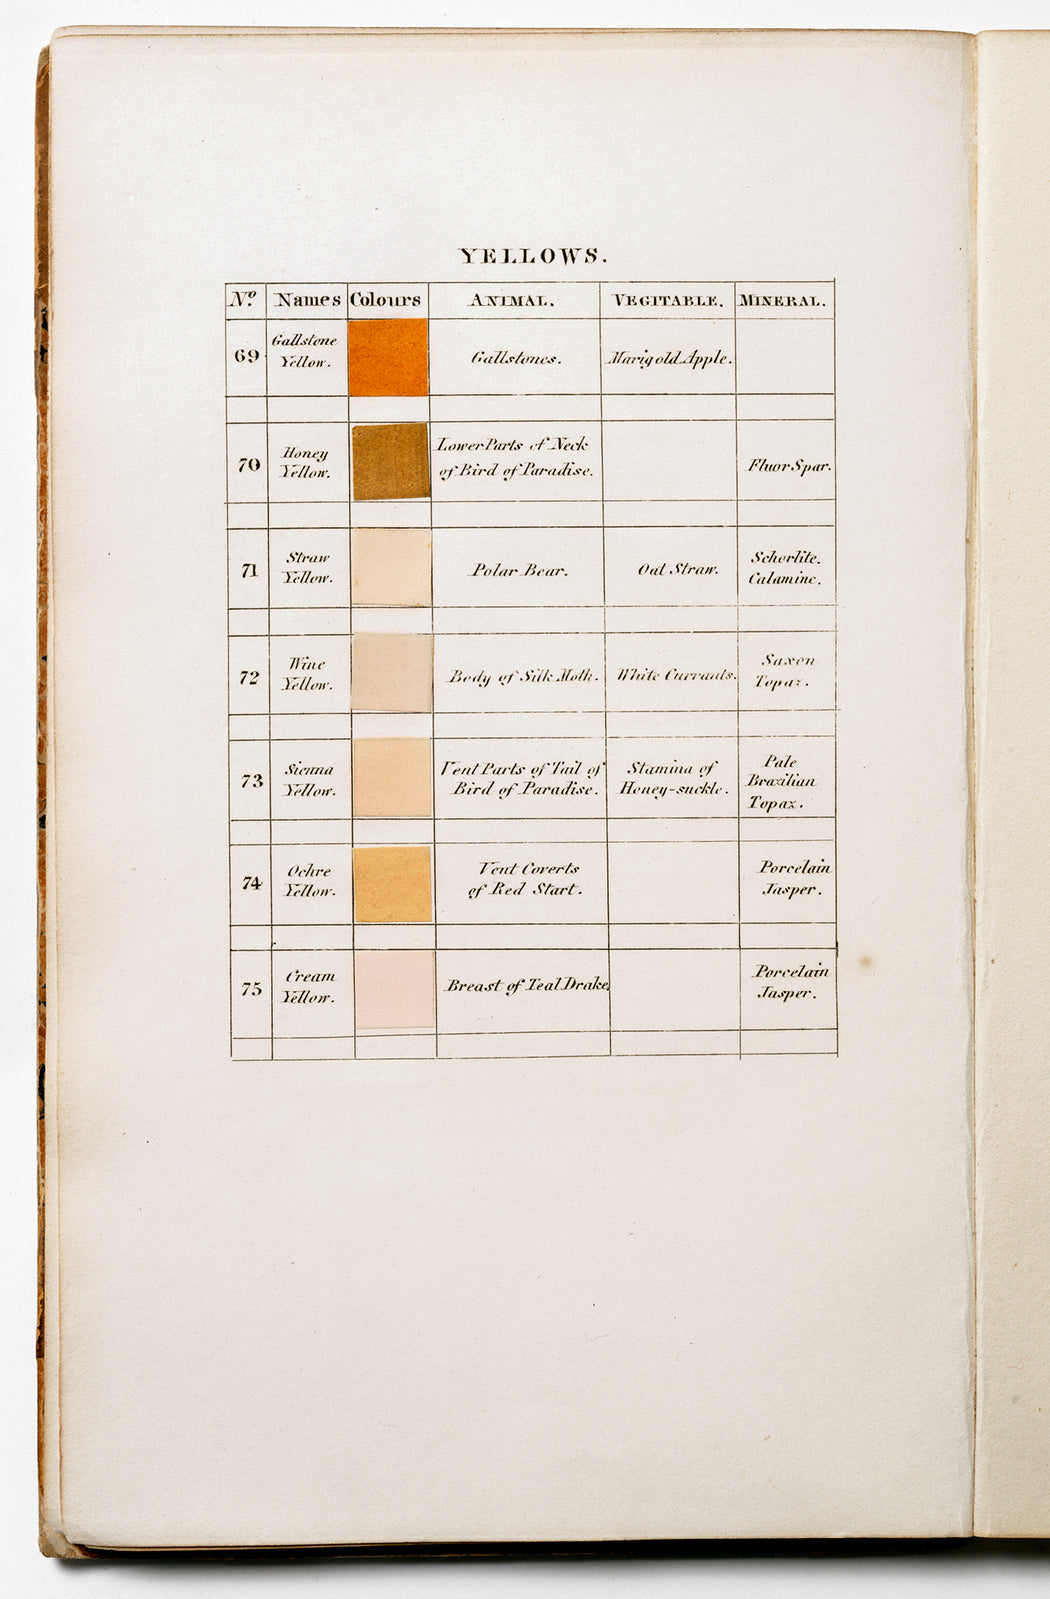 YELLOWS.
Nº Names Colours ANIMAL. VEGITABLE. MINERAL.
69 Gallstone Yellow. Gallstones. Marigold Apple.
70 Honey Yellow. Lower Parts of Neck of Bird of Paradise. Fluor Spar.
71 Straw Yellow. Polar Bear. Oat Straw. Schorlite. Calamine.
72 Wine Yellow. Body of Silk Moth. White Currants. Saxon Topaz.
73 Sienna Yellow. Vent Parts of Tail of Bird of Paradise. Stamina of Honey-suckle. Pale Brazilian Topaz.
74 Ochre Yellow. Vent Coverts of Red Start. Porcelain Jasper.
75 Cream Yellow. Breast of Teal Drake. Porcelain Jasper.